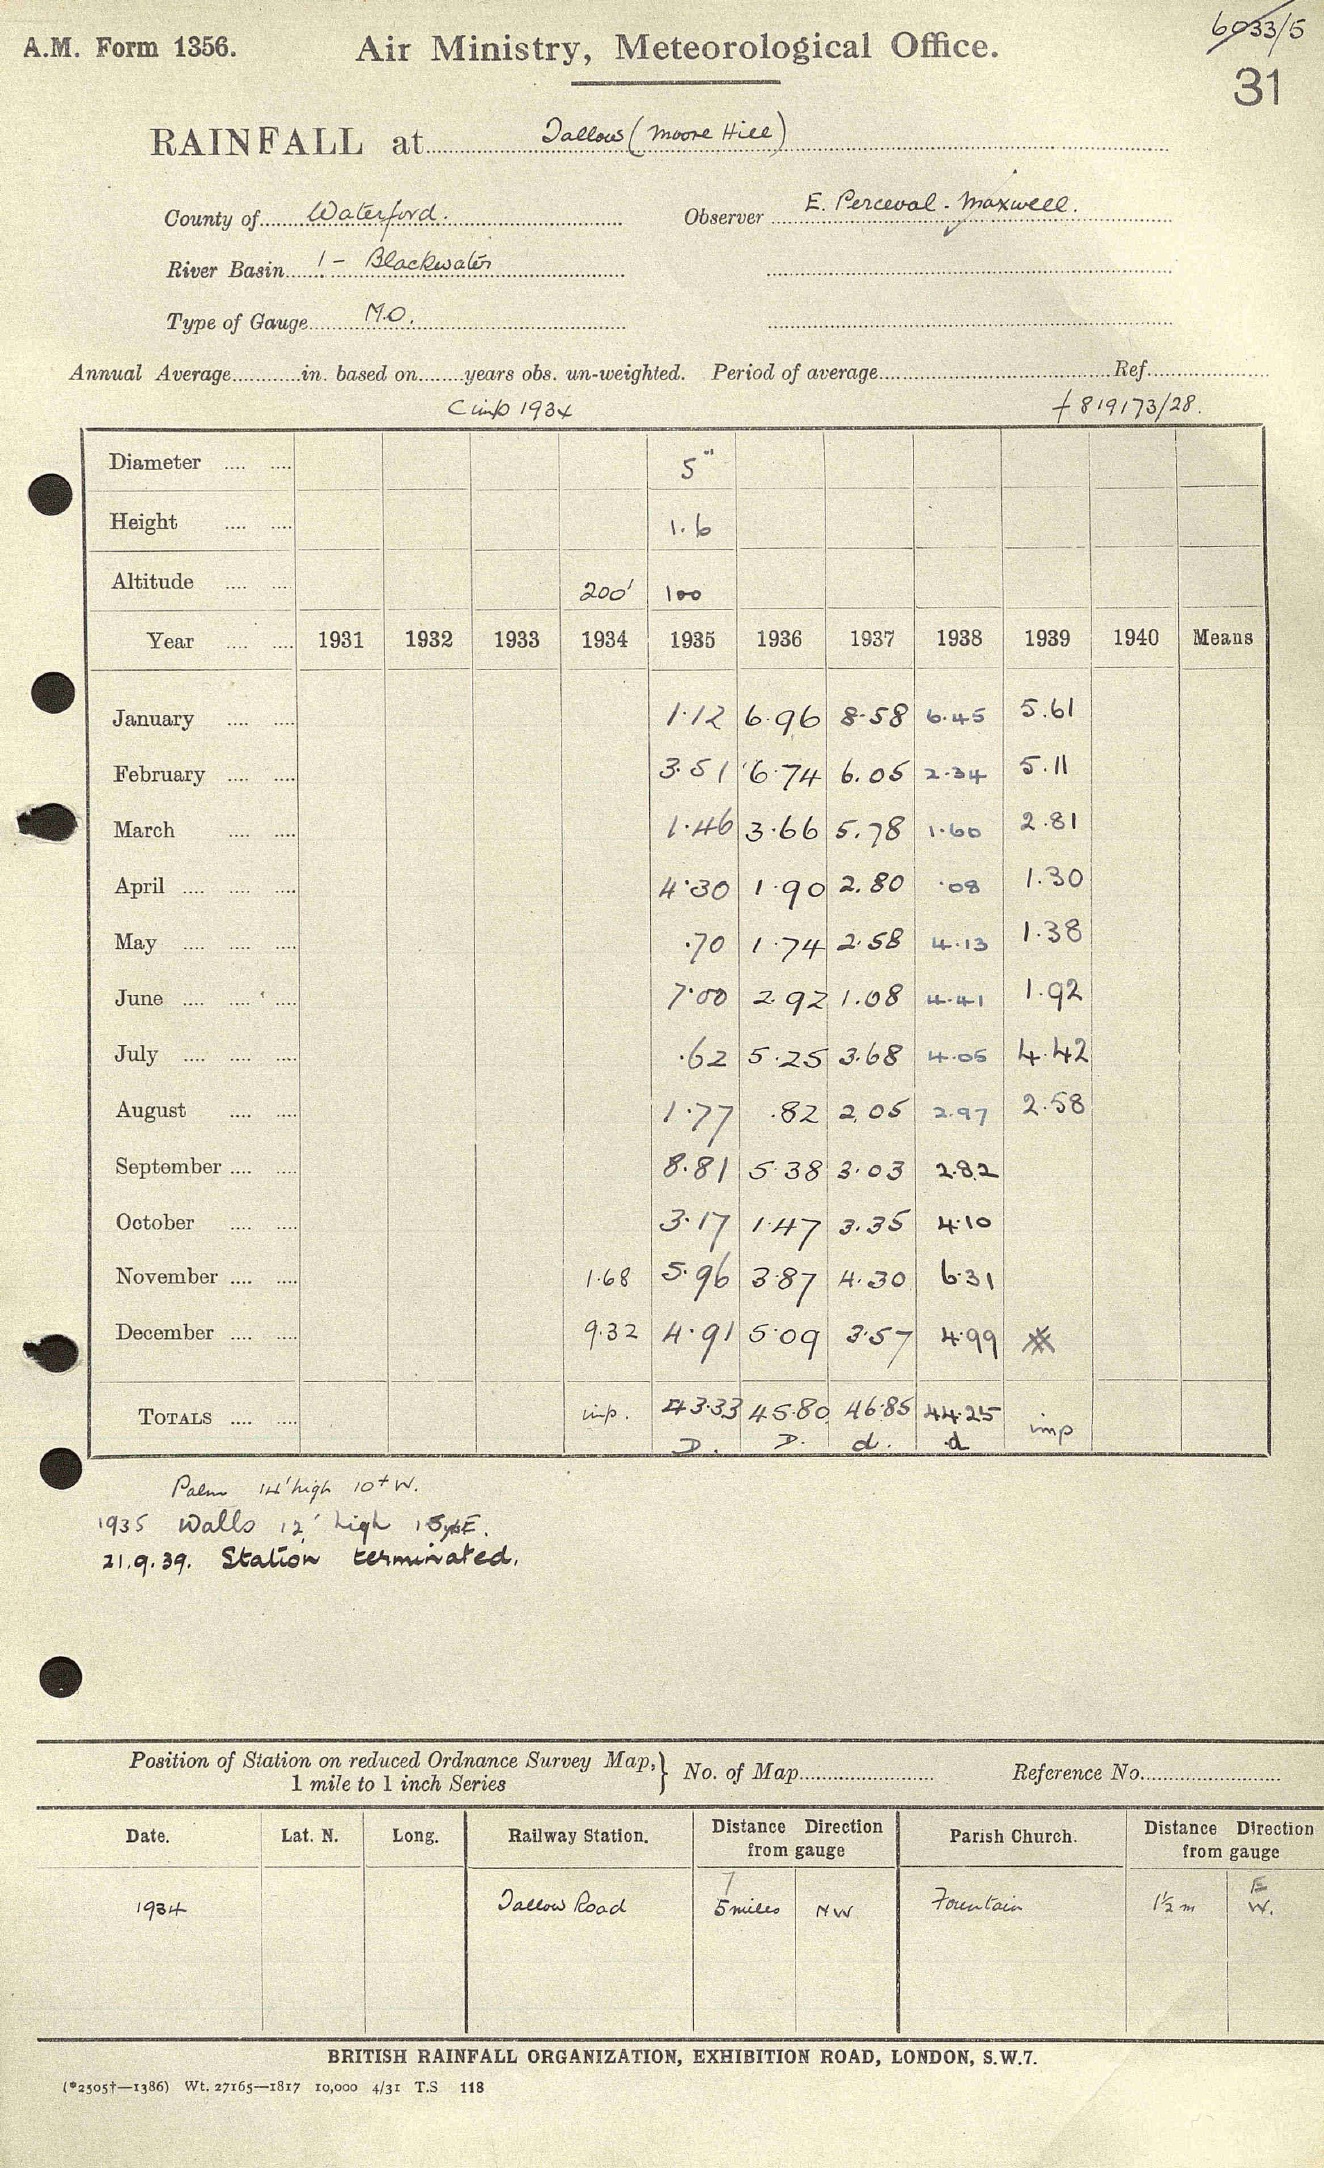 A.M. Form 1356. Air Ministry, Meteorological Office. 6033/5
31
RAINFALL at Tallow (Moore Hill)
County of Waterford. Observer E. Perceval-Maxwell.
River Basin 1 - Blackwater
Type of Gauge M.O.
Annual Average in. based on years obs. un-weighted. Period of average Ref.
imp 1934 819173/28.
Diameter 5"
Height 1.6
Altitude 200' 100
Year 1931 1932 1933 1934 1935 1936 1937 1938 1939 1940 Means
January 1.12 6.96 8.58 6.45 5.61
February 3.51 6.74 6.05 2.34 5.11
March 1.46 3.66 5.78 1.60 2.81
April 4.30 1.90 2.80 .08 1.30
May .70 1.74 2.58 4.13 1.38
June 7.00 2.92 1.08 4.41 1.92
July .62 5.25 3.68 4.05 4.42
August 1.77 .82 2.05 2.97 2.58
September 8.81 5.38 3.03 2.82
October 3.17 1.47 3.35 4.10
November 1.68 5.96 3.87 4.30 6.31
December 9.32 4.91 5.09 3.57 4.99
TOTALS imp. 43.33 45.80 46.85 44.25 imp
D. D. d. d
Palm 14' high 10+ W.
1935 Walls 12' high E.
21.9.39. Station terminated.
Position of Station on reduced Ordnance Survey Map, } No. of Map Reference No.
1 mile to 1 inch Series
Date. Lat. N. Long. Railway Station. Distance Direction from gauge Parish Church. Distance Direction from gauge
7 E
1934 Tallow Road 5 miles NW Fountain 1½ m W.
BRITISH RAINFALL ORGANIZATION, EXHIBITION ROAD, LONDON, S.W.7.
(*2505†—1386) Wt. 27165—1817 10,000 4/31 T.S 118